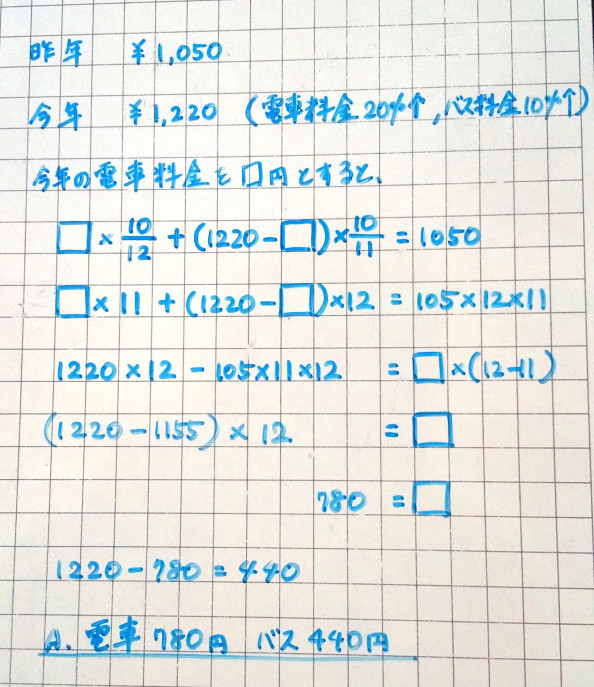 昨年 ¥1,050
今年 ¥1,220 (電車料金20%↑,バス料金10%↑)
今年の電車料金を□円とすると、
□×10/12+(1220-□)×10/11=1050
□×11+(1220-□)×12=105×12×11
1220×12-105×11×12=□×(12-11)
(1220-1155)×12=□
780=□
1220-780=440
A. 電車780円 バス440円